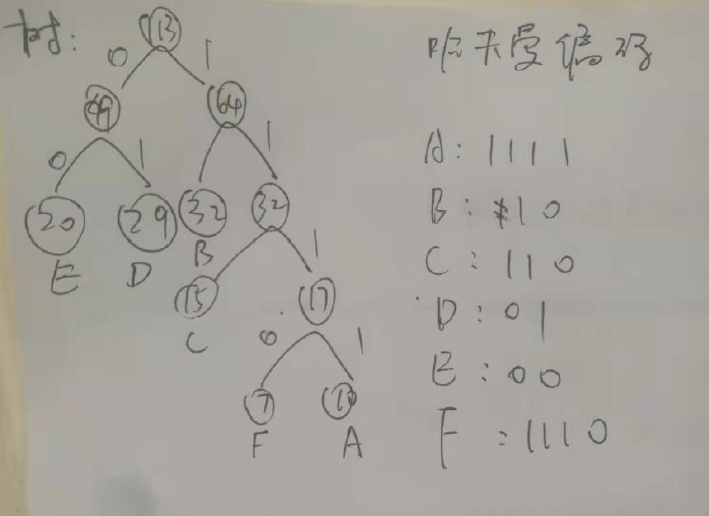 树:
哈夫曼编码
113
0 1
49 64
0 1 1
20 29 32 32
E D B
1
15 17
C
0 1
7 10
F A
A: 1111
B: 10
C: 110
D: 01
E: 00
F: 1110